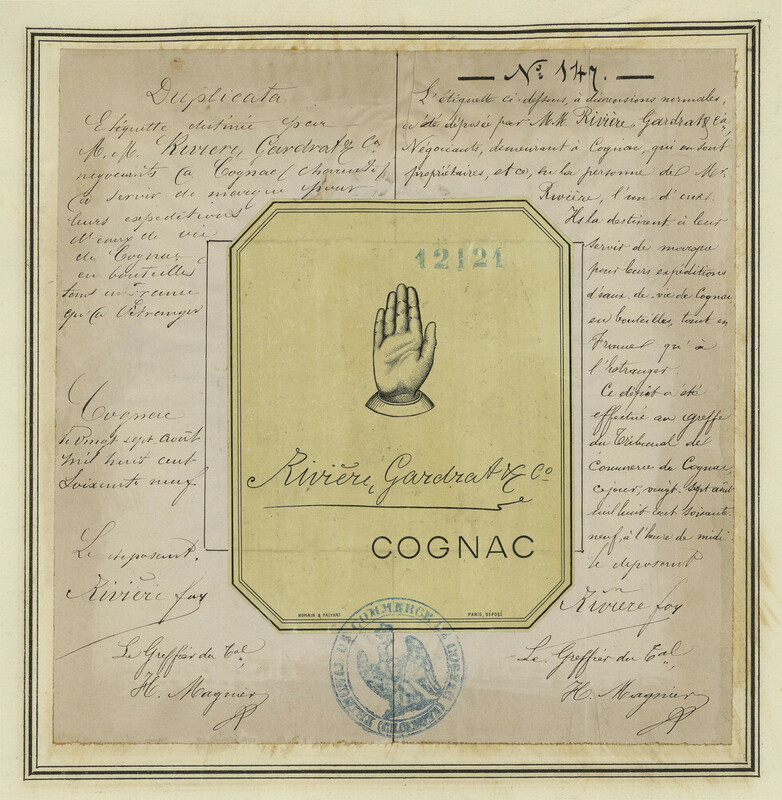 Duplicata
Etiquette destinée par
M.M. Rivière, Gardrat & Co
négociants à Cognac (charente)
à servir de marque pour
leurs expéditions
d'eaux de vie
de Cognac
en bouteilles
tant en France
qu'à l'étranger
Cognac
le vingt sept août
mil huit cent
soixante neuf
Le déposant,
Rivière foy
Le Greffier du Tal,
H. Magnier
— No 147. —
L'étiquette ci-dessous, à dimensions normales,
a été déposée par M.M. Rivière Gardrat & Co,
Négociants, demeurant à Cognac, qui en sont
propriétaires, et ce, en la personne de Mr
Rivière, l'un d'eux.
Ils la destinent à leur
servir de marque
pour leurs expéditions
d'eaux-de-vie de Cognac,
en bouteilles, tant en
France qu'à
l'Etranger.
Ce dépôt a été
effectué au greffe
du Tribunal de
Commerce de Cognac,
ce jour, vingt-sept août
mil huit cent soixante-
neuf, à l'heure de midi
le déposant
Rivière foy
Le Greffier du Tal,
H. Magnier
12121
Rivière, Gardrat & Co
COGNAC
ROMAIN & PALYART PARIS, DÉPOSÉ
TRIBUNAL DE COMMERCE DE COGNAC (CHARENTE)